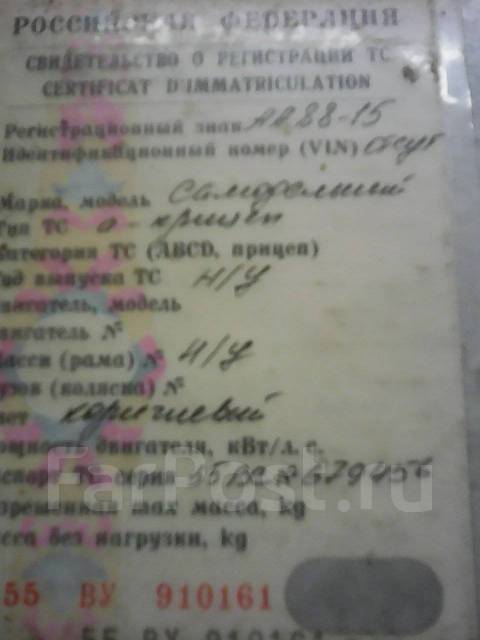 РОССИЙСКАЯ ФЕДЕРАЦИЯ
СВИДЕТЕЛЬСТВО О РЕГИСТРАЦИИ ТС
CERTIFICAT D'IMMATRICULATION
Регистрационный знак АА 88-15
Идентификационный номер (VIN) отсут
Марка, модель Самодельный
Тип ТС а-прицеп
категория ТС (ABCD, прицеп)
од выпуска ТС Н/У
вигатель, модель
вигатель №
асси (рама) № Н/У
узов (коляска) №
вет коричневый
ощность двигателя, кВт/л.с.
спорт ТС серия 55 679456
зрешенная max масса, kg
сса без нагрузки, kg
FarPost.ru
55 ВУ 910161
55 ВУ 910161